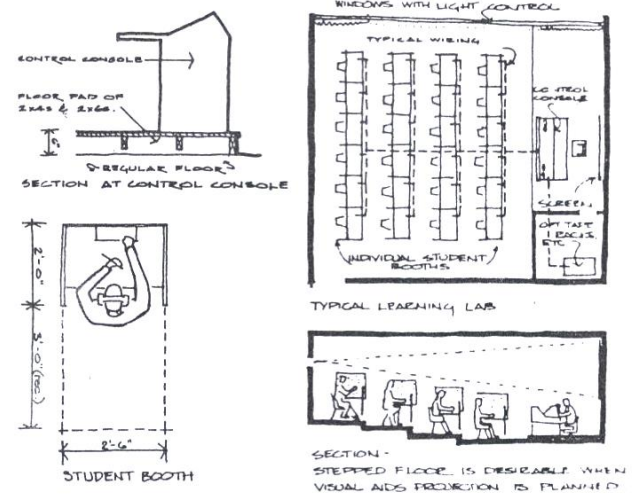 CONTROL CONSOLE
FLOOR PAD OF
2X4S & 2X6S.
6"
REGULAR FLOOR
SECTION AT CONTROL CONSOLE
2'-0"
3'-0" (rec.)
2'-6"
STUDENT BOOTH
WINDOWS WITH LIGHT CONTROL
TYPICAL WIRING
CONTROL
CONSOLE
SCREEN
RACKS,
ETC.
INDIVIDUAL STUDENT
BOOTHS
TYPICAL LEARNING LAB
SECTION -
STEPPED FLOOR IS DESIRABLE WHEN
VISUAL AIDS PROJECTION IS PLANNED